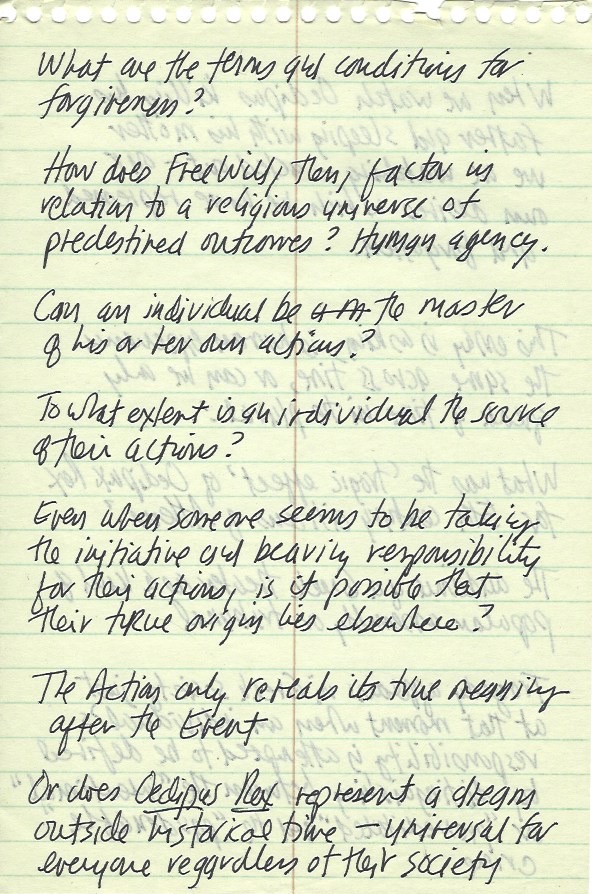 What are the terms and conditions for
forgiveness?
How does Free Will, then, factor in
relation to a religious universe of
predestined outcomes? Human agency.
Can an individual be the master
of his or her own actions?
To what extent is an individual the source
of their actions?
Even when someone seems to be taking
the initiative and bearing responsibility
for their actions, is it possible that
their true origin lies elsewhere?
The Action only reveals its true meaning
after the Event
Or does Oedipus Rex represent a dream
outside historical time – universal for
everyone regardless of their society